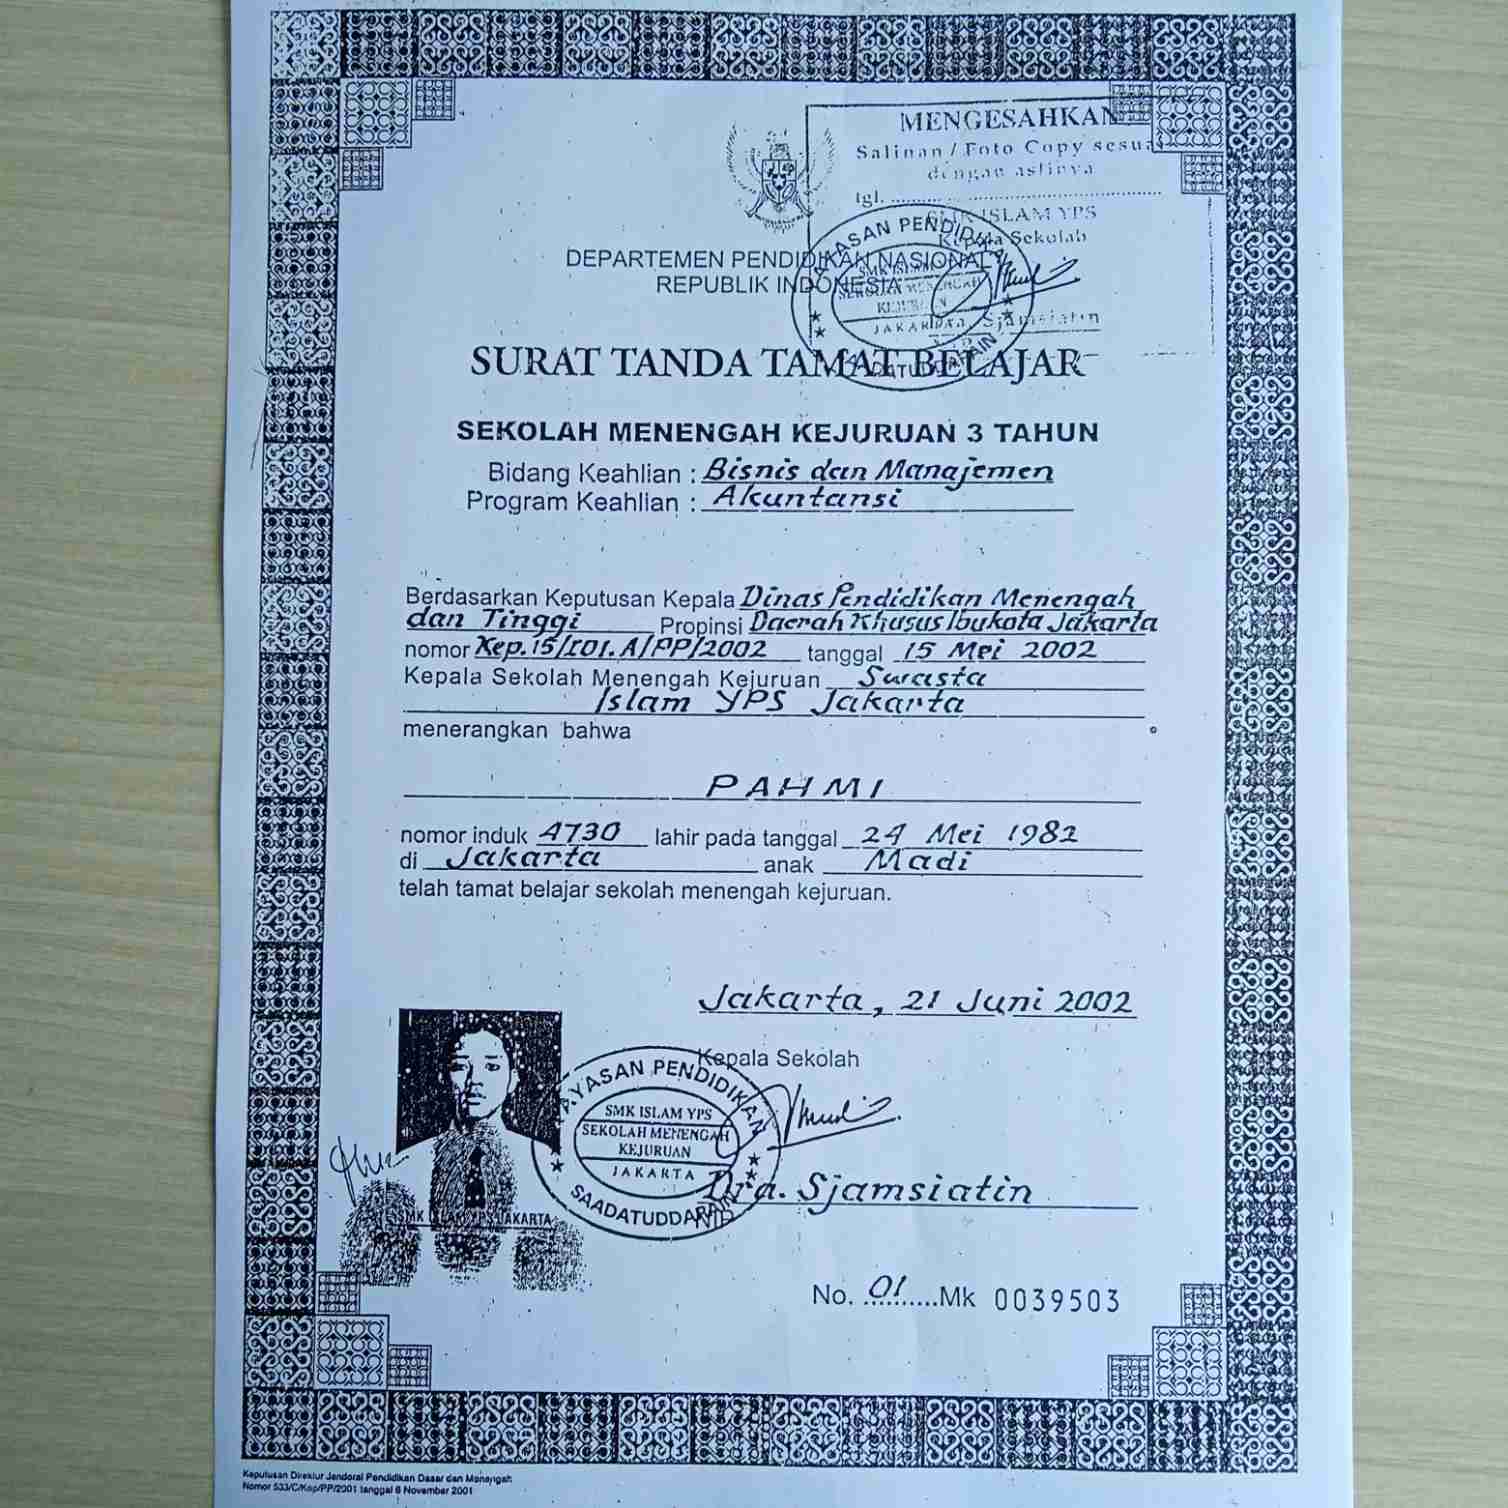 MENGESAHKAN
Salinan / Foto Copy sesuai
dengan aslinya
tgl. ........................................
SMK ISLAM YPS
Kepala Sekolah
Dra. Sjamsiatin
YAYASAN PENDIDIKAN
SMK ISLAM
SEKOLAH MENENGAH
KEJURUAN
JAKARTA
SAADATUDDARAIN
DEPARTEMEN PENDIDIKAN NASIONAL
REPUBLIK INDONESIA
SURAT TANDA TAMAT BELAJAR
SEKOLAH MENENGAH KEJURUAN 3 TAHUN
Bidang Keahlian : Bisnis dan Manajemen
Program Keahlian : Akuntansi
Berdasarkan Keputusan Kepala Dinas Pendidikan Menengah
dan Tinggi Propinsi Daerah Khusus Ibukota Jakarta
nomor Kep. 15/I01.A/PP/2002 tanggal 15 Mei 2002
Kepala Sekolah Menengah Kejuruan Swasta
Islam YPS Jakarta
menerangkan bahwa
PAHMI
nomor induk 4730 lahir pada tanggal 24 Mei 1982
di Jakarta anak Madi
telah tamat belajar sekolah menengah kejuruan.
Jakarta, 21 Juni 2002
Kepala Sekolah
YAYASAN PENDIDIKAN
SMK ISLAM YPS
SEKOLAH MENENGAH
KEJURUAN
JAKARTA
SAADATUDDARAIN
Dra. Sjamsiatin
NIP
SMK ISLAM YPS JAKARTA
No. 01 Mk 0039503
Keputusan Direktur Jenderal Pendidikan Dasar dan Menengah
Nomor 533/C/Kep/PP/2001 tanggal 6 November 2001